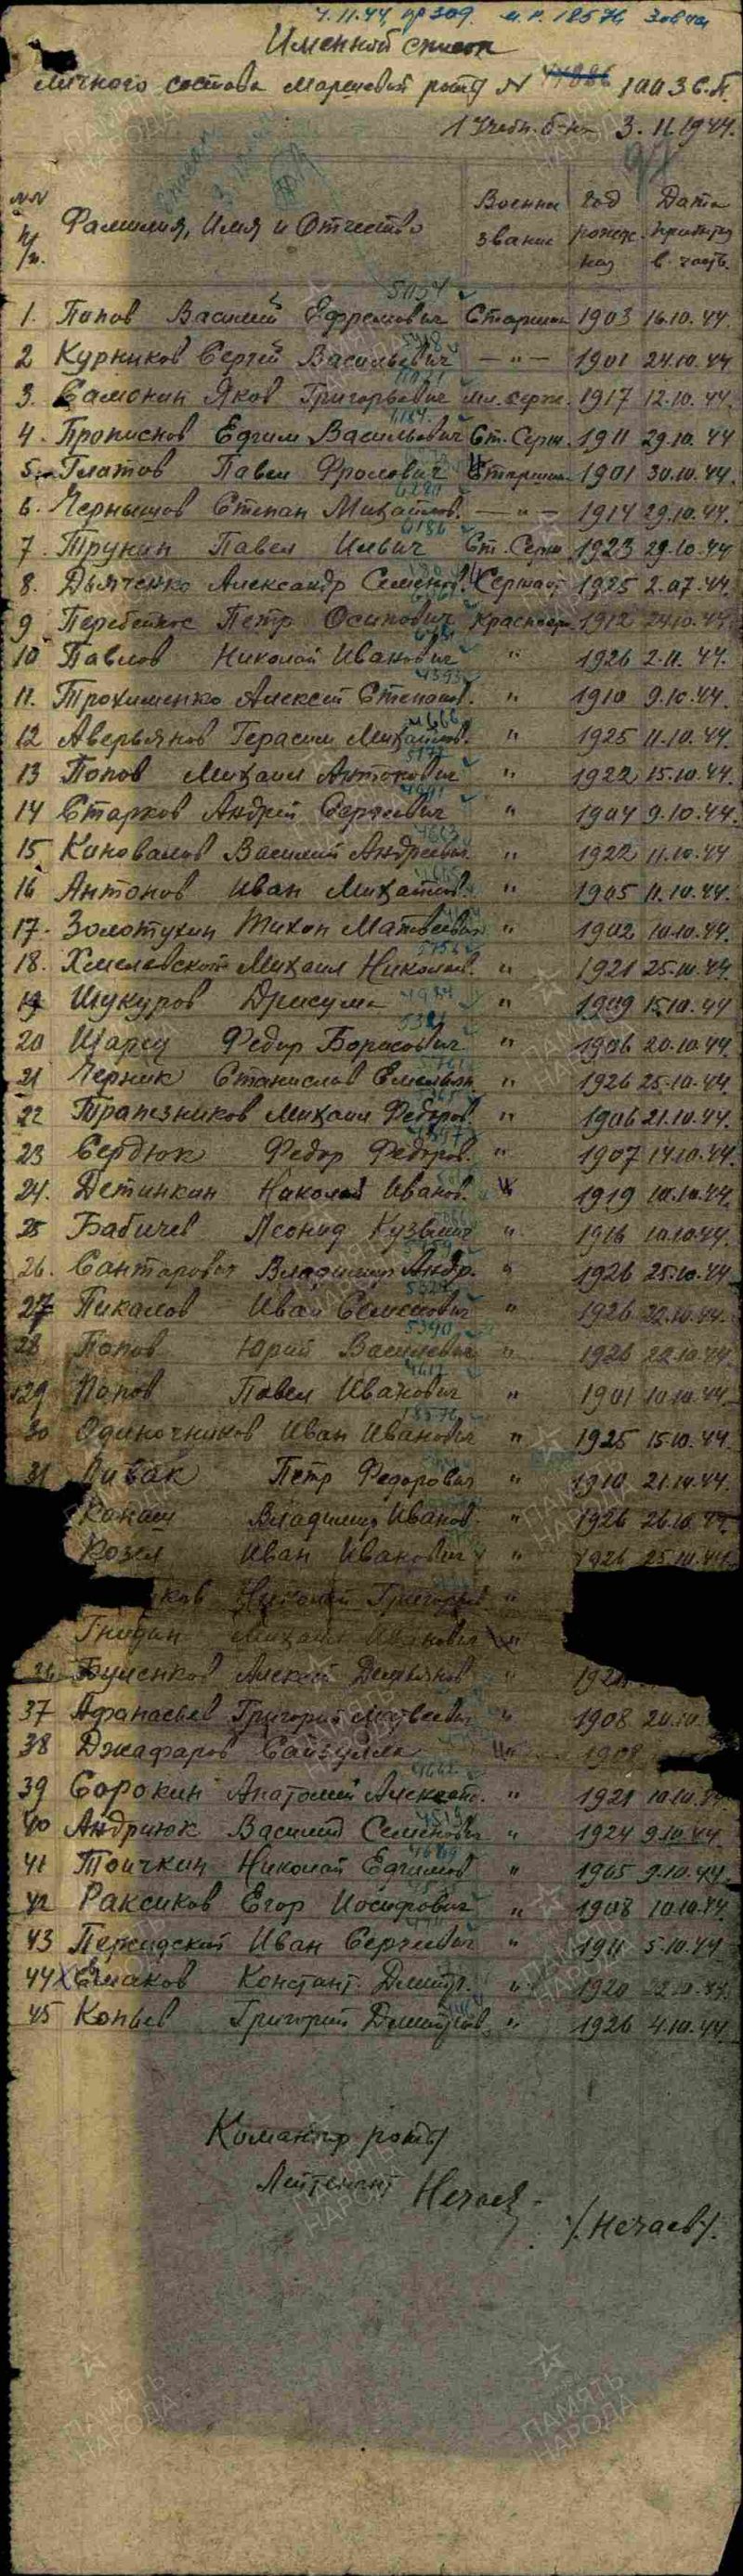 4.11.44 пр 309. м.р. 18576
Именной список
личного состава маршевой роты N 100 З.С.П.
1 Учебн. б-н 3.11.1944.
NN п/п. Фамилия, Имя и Отчество Военное звание год рожде ния Дата прибытия в часть.
1. Попов Василий Ефремович Старшина 1903 16.10.44.
2 Курников Сергей Васильевич —"— 1901 24.10.44
3. Самонин Яков Григорьевич мл. серж. 1917 12.10.44.
4. Прописнов Ефим Васильевич Ст. Серж. 1911 29.10.44
5. Платов Павел Фролович Старшина 1901 30.10.44.
6. Чернышов Степан Михайлов. —"— 1914 29.10.44.
7. Трунин Павел Ильич Ст. Серж 1923 29.10.44
8. Дьяченко Александр Семенов. Сержант 1925 2.07.44.
9 Перебейнос Петр Осипович Красноарм. 1912 24.10.44.
10 Павлов Николай Иванович " 1926 2.11.44.
11. Трохименко Алексей Степанов. " 1910 9.10.44.
12 Аверьянов Герасим Михайлов. " 1925 11.10.44.
13 Попов Михаил Антонович " 1922 15.10.44.
14 Старков Андрей Сергеевич " 1904 9.10.44.
15 Коновалов Василий Андреевич " 1922 11.10.44
16 Антонов Иван Михайлов. " 1905 11.10.44.
17. Золотухин Тихон Матвеевич " 1902 10.10.44.
18. Хмелевской Михаил Николаев. " 1921 25.10.44.
19 Шукуров " 1909 15.10.44
20 Шарец Федор Борисович " 1906 20.10.44.
21 Черник Станислав Емельян. " 1926 25.10.44.
22 Трапезников Михаил Федоров. " 1906 21.10.44.
23 Сердюк Федор Федоров. " 1907 14.10.44.
24. Детинкин Николай Иванов. " 1919 10.10.44.
25 Бабичев Леонид Кузьмич " 1916 10.10.44.
26. Владимир Андр. " 1926 25.10.44
27 Пикалов Иван Семенович " 1926 22.10.44.
28 Попов Юрий Васильевич " 1926 22.10.44.
29 Попов Павел Иванович " 1901 10.10.44.
30 Одиночников Иван Иванович " 1925 15.10.44.
31 Пивак Петр Федорович " 1910 21.10.44.
Копаш Владимир Иванов. " 1926 26.10.44
Козел Иван Иванович " 1926 25.10.44.
ков Николай Григорьев "
Гнидин Михаил Иванович "
36 Буненков Алексей Демьянов " 192
37 Афанасьев Григорий Матвеевич " 1908 20.10.
38 Джафаров Сайфулла " 1908
39 Сорокин Анатолий Алексеев. " 1921 10.10.44
40 Андриюк Василий Семенович " 1924 9.10.44
41 Точкин Николай Ефимов " 1905 9.10.44.
42 Раксиков Егор Иосифович " 1908 10.10.44.
43 Иван Сергеевич " 1911 5.10.44
44 Константин. Дмитр. " 1920 22.10.44.
45 Копьев Григорий Дмитриев. " 1926 4.10.44
Командир роты
Лейтенант Нечаев
/Нечаев/.
ПАМЯТЬ НАРОДА